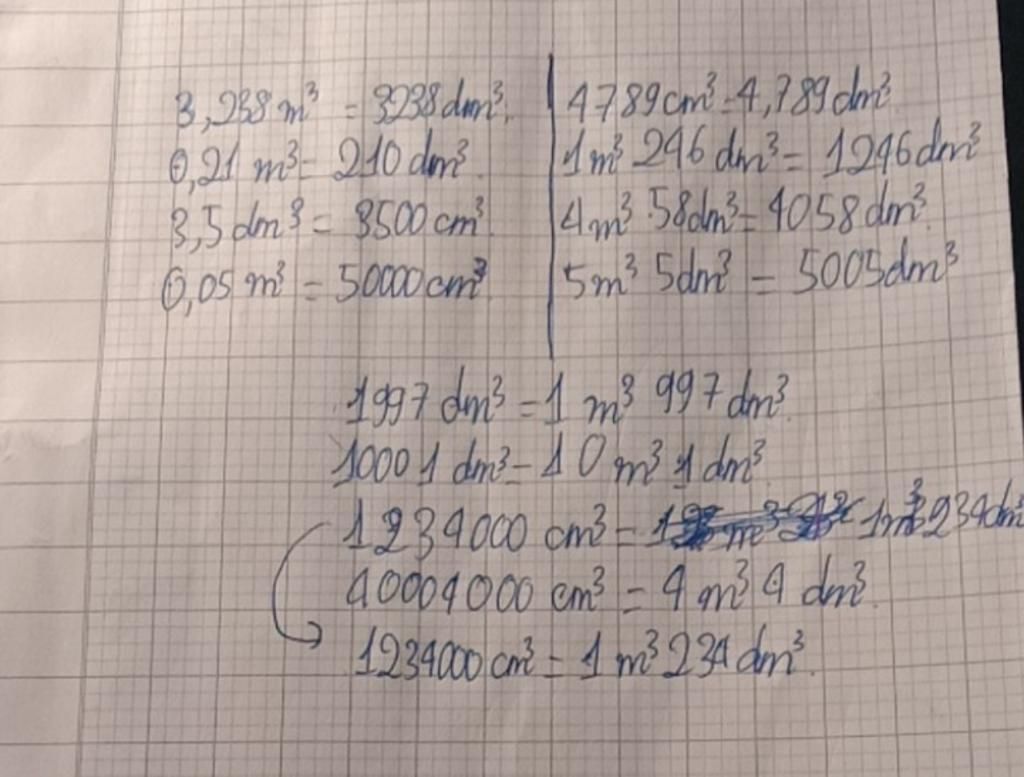 3,238 m³ = 3238 dm³.
0,21 m³ = 210 dm³.
3,5 dm³ = 3500 cm³
0,05 m³ = 50000 cm³
4789 cm³ = 4,789 dm³
1m³ 246 dm³ = 1246 dm³
4m³ 58dm³ = 4058 dm³.
5m³ 5dm³ = 5005dm³
1997 dm³ = 1 m³ 997 dm³.
10001 dm³ = 10 m³ 1 dm³
1234000 cm³ = 1m³ 234dm³
40004000 cm³ = 4 m³ 4 dm³.
1234000 cm³ = 1 m³ 234 dm³.